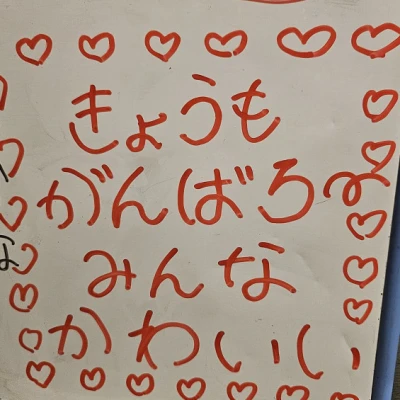 きょうも
がんばろ〜
みんな
かわいい